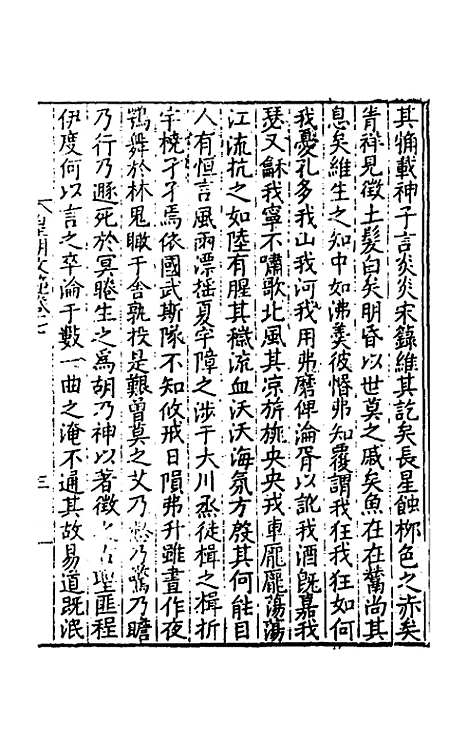 其痡載神子言炎炎宋籙維其訖矣長星蝕栁色之赤矣
眚祥見徵土髮白矣明昏以世莫之戚矣魚在在藻尚其
息矣維生之知中如沸羹彼惛弗知覆謂我狂我狂如何
我憂孔多我山我河我用弗磨俾淪胥以訛我酒既嘉我
瑟又龢我寧不嘯歌北風其凉旂旐央央戎車龎龎蕩蕩
江流抗之如陸有腥其穢流血沃沃海氛方發其何能目
人有恒言風雨漂摇夏宇障之涉于大川烝徒楫之楫折
宇橈孑孑焉依國武斯隊不知攸戒日隕弗升雖晝作夜
鶚舞於林鬼瞰于舍孰投是艱曽莫之艾乃愁乃驚乃瞻
乃行乃遯死於冥晻生之爲胡乃神以著徵聖匪程
伊度何以言之卒淪于數一曲之淹不通其故易道既泯
皇明文範卷七
三